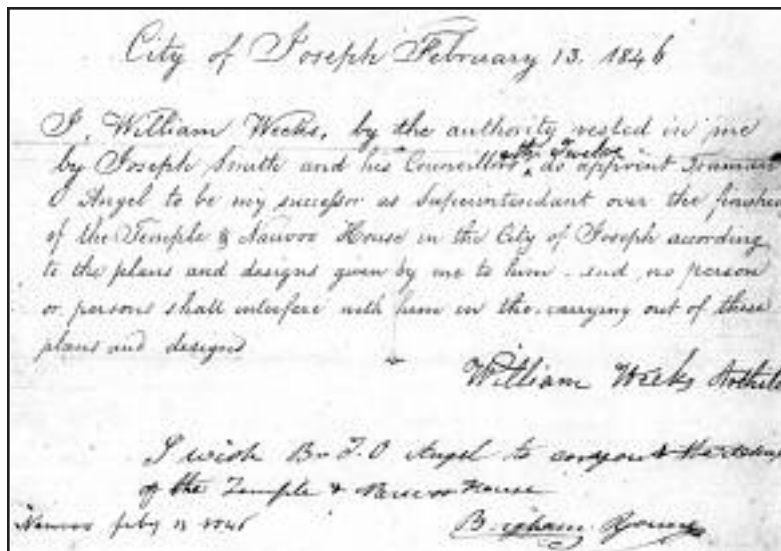 City of Joseph February 13. 1846
I, William Weeks, by the authority vested in me
by Joseph Smith and his Councillors & the Twelve do appoint Truman
O Angel to be my successor as Superintendant over the finished
of the Temple & Nauvoo House in the City of Joseph according
to the plans and designs given by me to him and no person
or persons shall interfere with him in the carrying out of these
plans and designs
William Weeks
I wish Br T. O Angel to
of the Temple & Nauvoo House
Nauvoo Feby 13 1846 Brigham Young